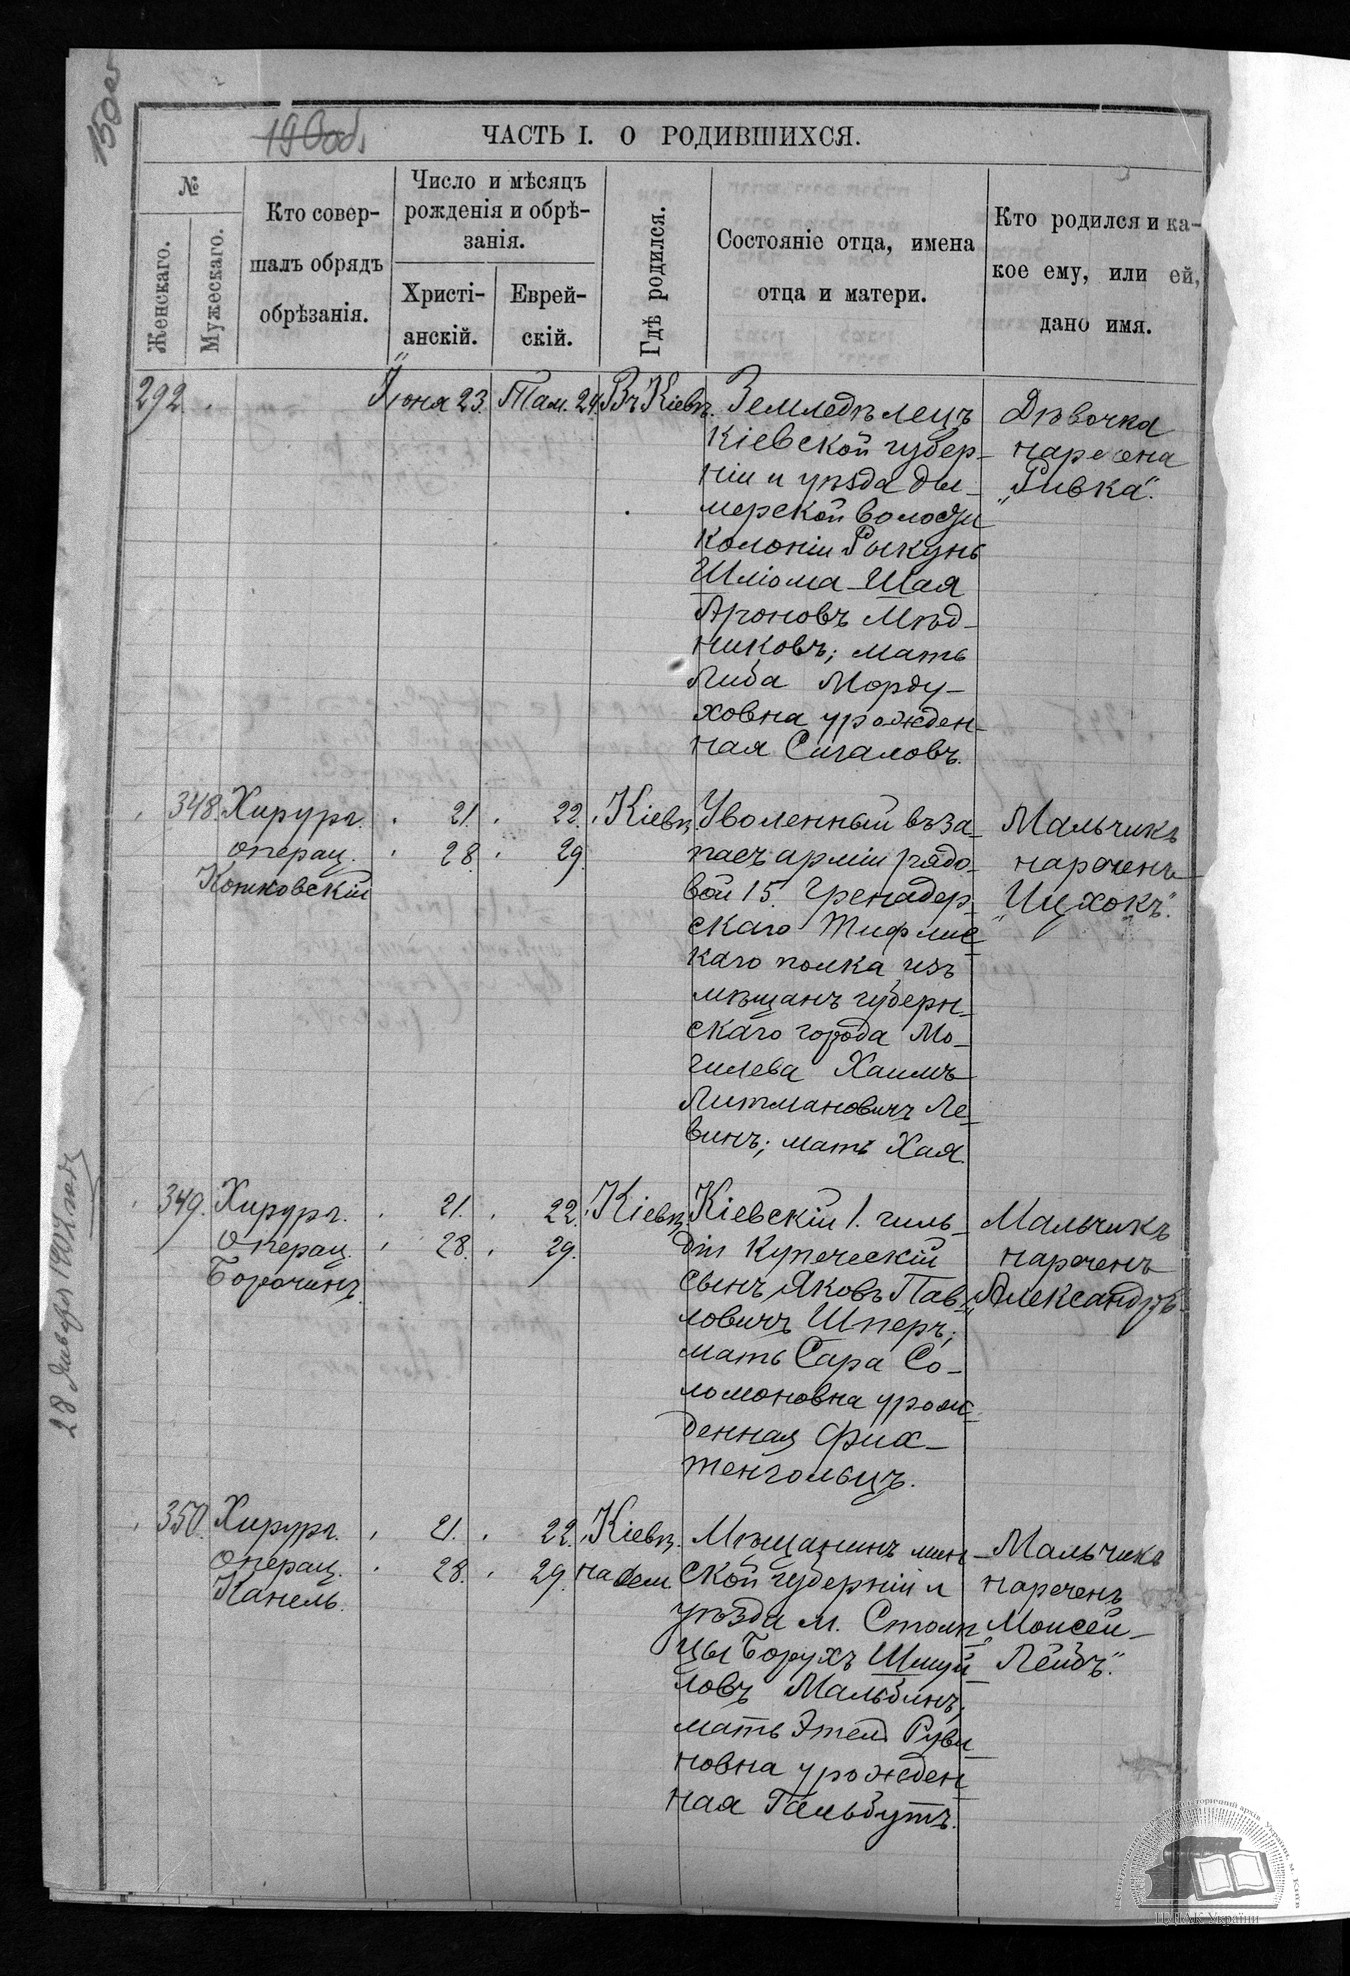 150об
190об.
ЧАСТЬ I. О РОДИВШИХСЯ.
№
Женскаго.
Мужескаго.
Кто совер-
шалъ обрядъ
обрѣзанія.
Число и мѣсяцъ
рожденія и обрѣ-
занія.
Христі-
анскій.
Еврей-
скій.
Гдѣ родился.
Состояніе отца, имена
отца и матери.
Кто родился и ка-
кое ему, или ей,
дано имя.
292.
Іюня 23.
Там. 24.
Въ Кіевѣ.
Земледѣлецъ
Кіевской губер-
ніи и уѣзда Ды-
мерской волости
колоніи Рыкунь
Шліома-Шая
Ароновъ Мѣд-
никовъ; мать
Либа Морду-
ховна урожден-
ная Сигаловъ.
Дѣвочка
наречена
„Ривка“.
348.
Хирург.
операц.
Котковскій
21.
28.
22.
29.
Кіевѣ.
Уволенный въ за-
пасъ арміи рядо-
вой 15. Гренадер-
скаго Тифлис-
каго полка, изъ
мѣщанъ губерн-
скаго города Мо-
гилева Хаимъ
Литмановичъ Ле-
винъ; мать Хая.
Мальчикъ
нареченъ
„Ицхокъ“.
349.
Хирург.
операц.
Борочинъ.
21.
28.
22.
29.
Кіевѣ.
Кіевскій 1. гиль-
діи купеческій
сынъ Яковъ Пав-
ловичъ Шперъ;
мать Сара Со-
ломоновна урож-
денная Фих-
тенгольцъ.
Мальчикъ
нареченъ
„Александръ“
350.
Хирург.
операц.
Канель.
21.
28.
22.
29.
Кіевѣ.
на Дем.
Мѣщанинъ мин-
ской губерніи и
уѣзда м. Столп-
цы Борухъ Шмуй-
ловъ Мальбинъ;
мать Этель Руви-
новна урожден-
ная Гальбутъ.
Мальчикъ
нареченъ
„Моисей-
Лейбъ“.
28 Января 1907 года
ЦДІАК України